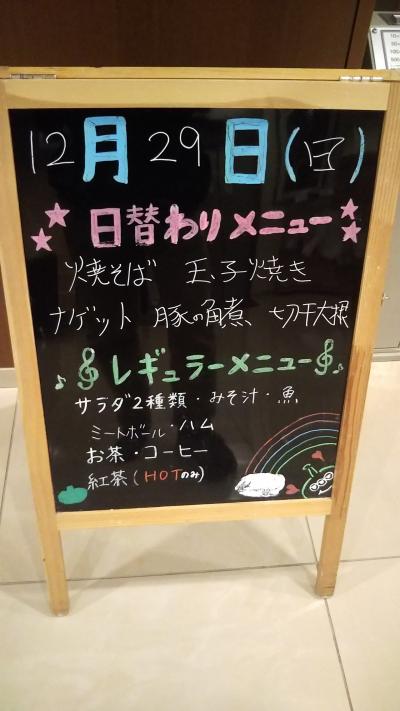 12月29日(日)
日替わりメニュー
焼そば 玉子焼き
ナゲット 豚の角煮 切干大根
レギュラーメニュー
サラダ2種類・みそ汁・魚
ミートボール・ハム
お茶・コーヒー
紅茶(HOTのみ)